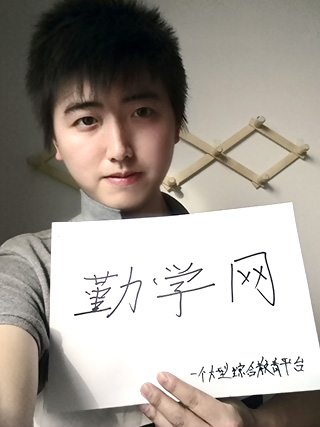 勤学网
一个大型综合教育平台